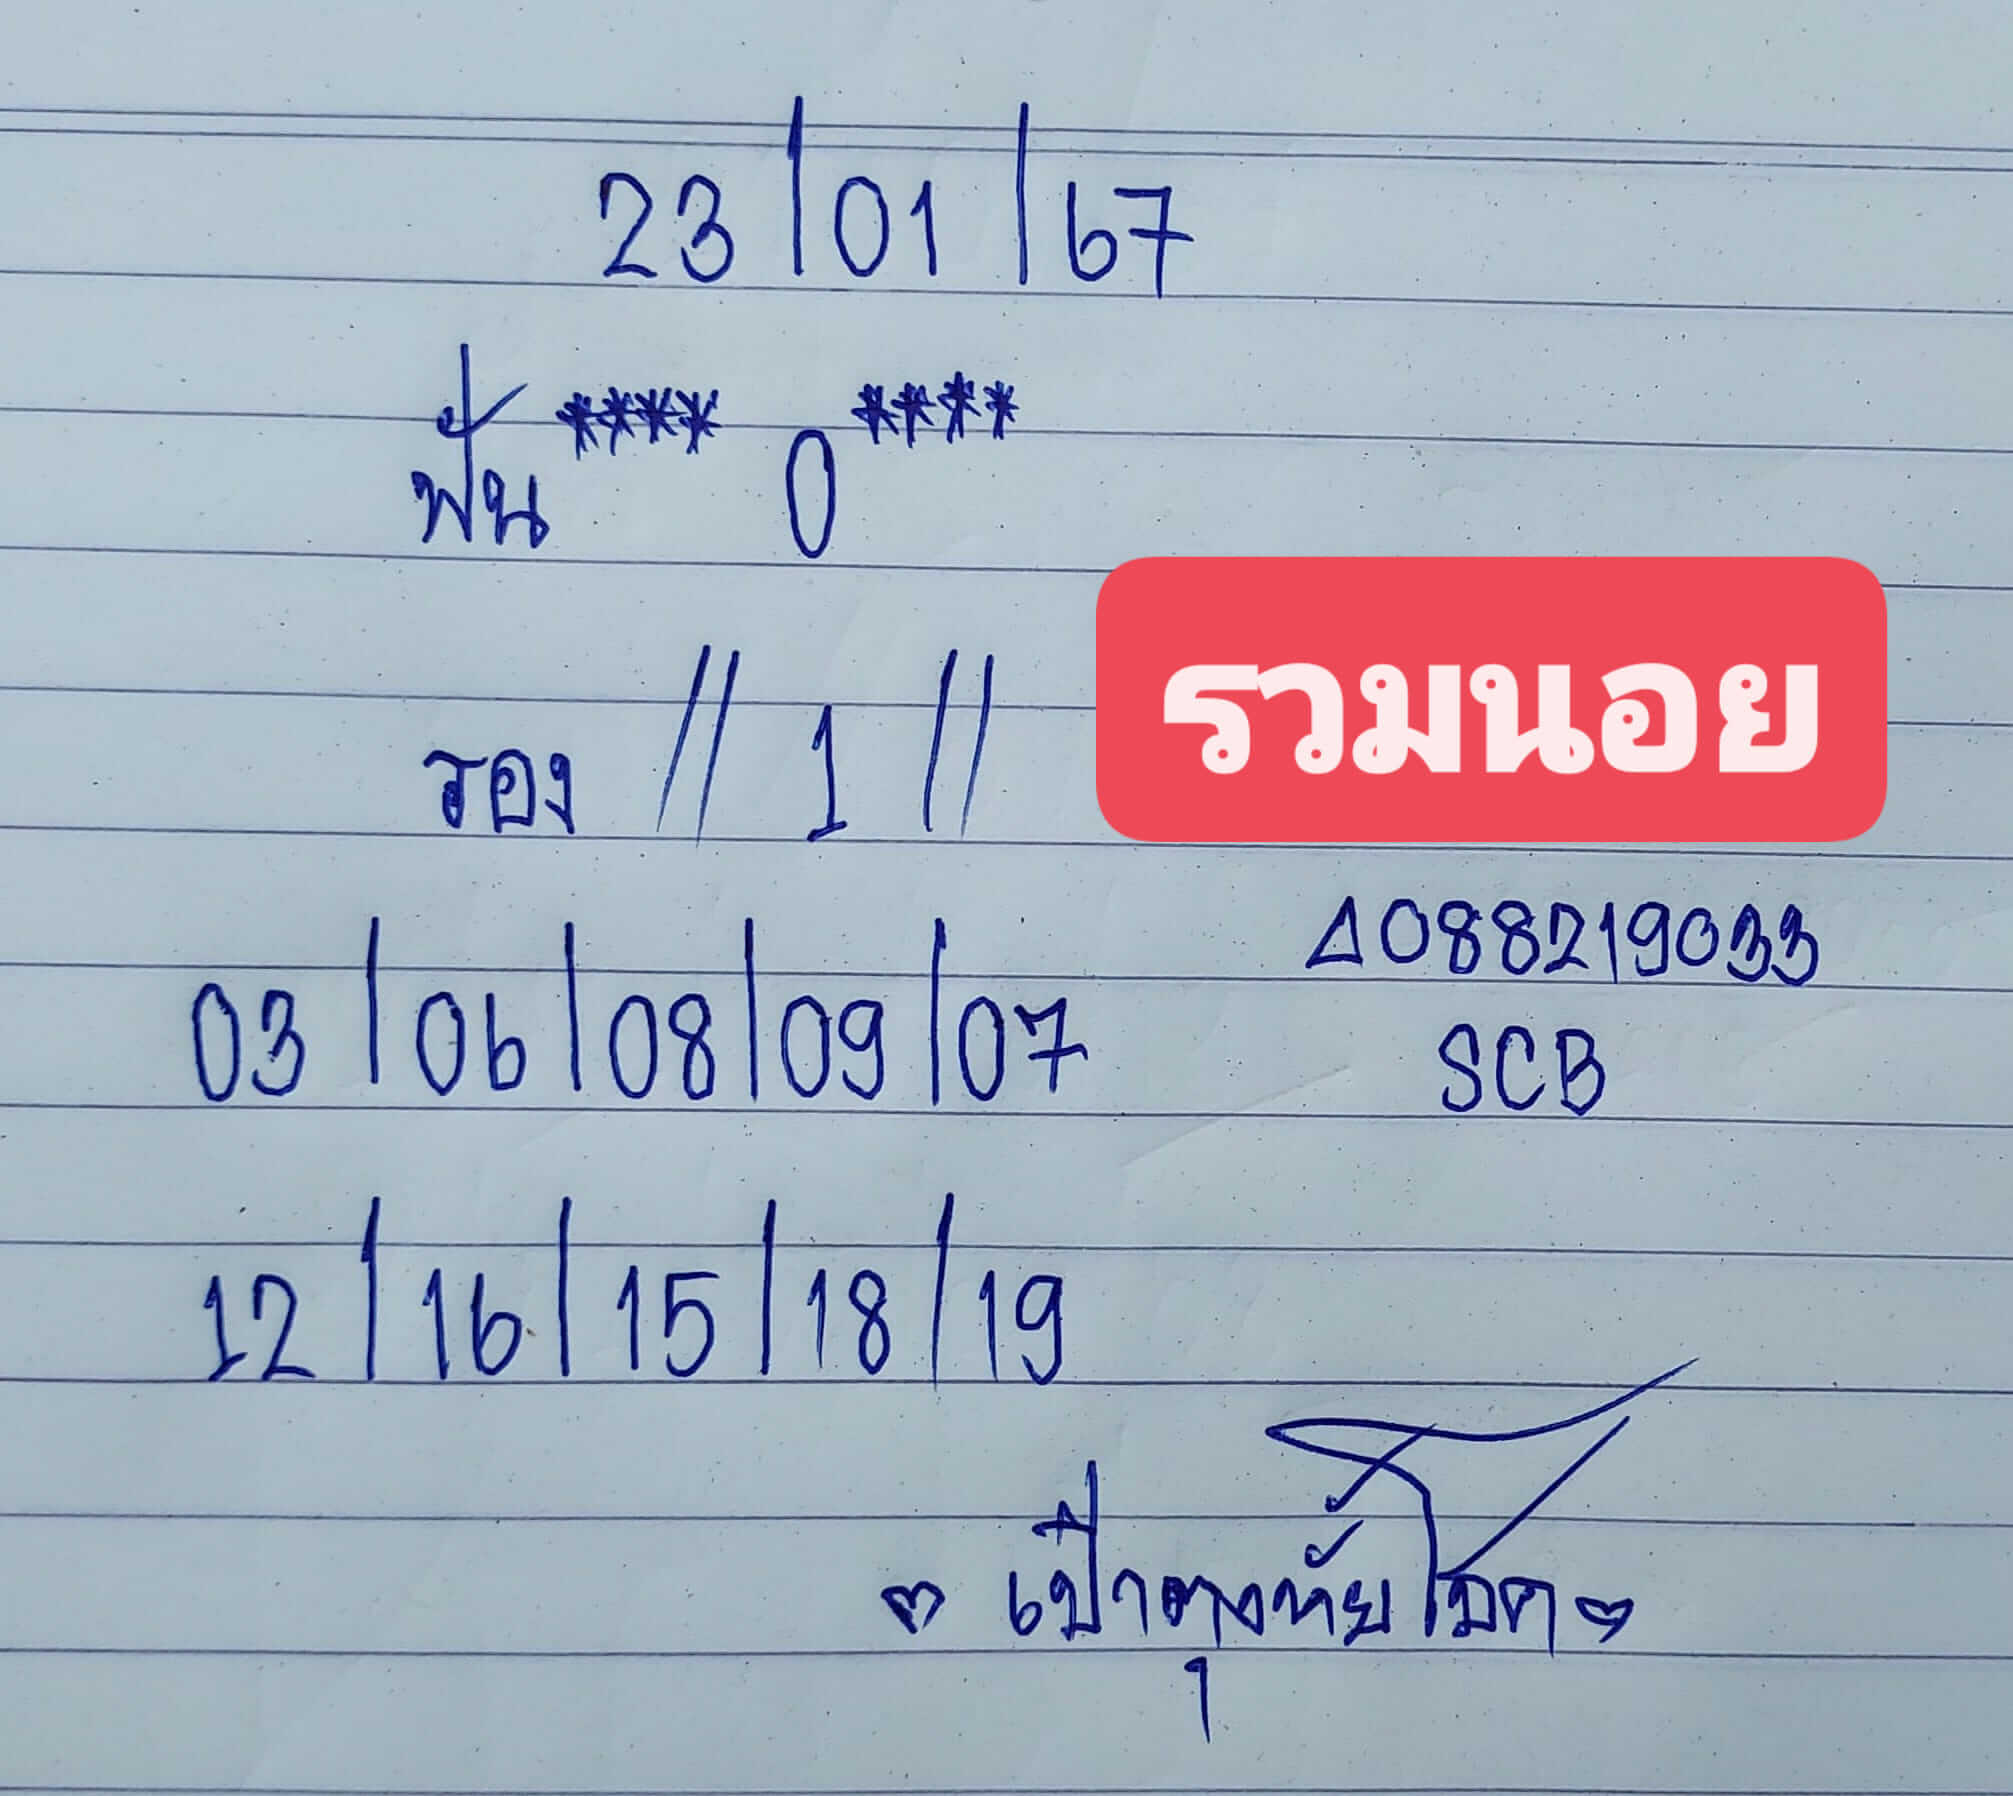 23/01/67
ฟัน **** 0 ****
รอง // 1 //
รวมนอย
Δ088219033
03/06/08/09/07
SCB
12/16/15/18/19
เป๋าตุงทัยโชค